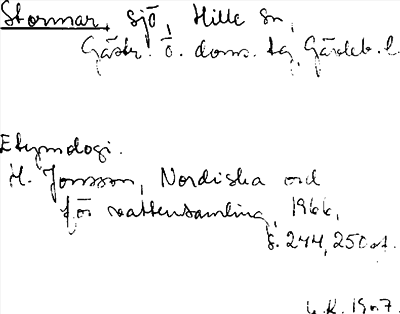 Stormar, sjö, Hille sn,
Gästr. ö. doms. tg, Gärdeb. l.
Etymologi.
H. Jonsson, Nordiska ord
för vattensamling, 1966,
s. 244, 250 f.